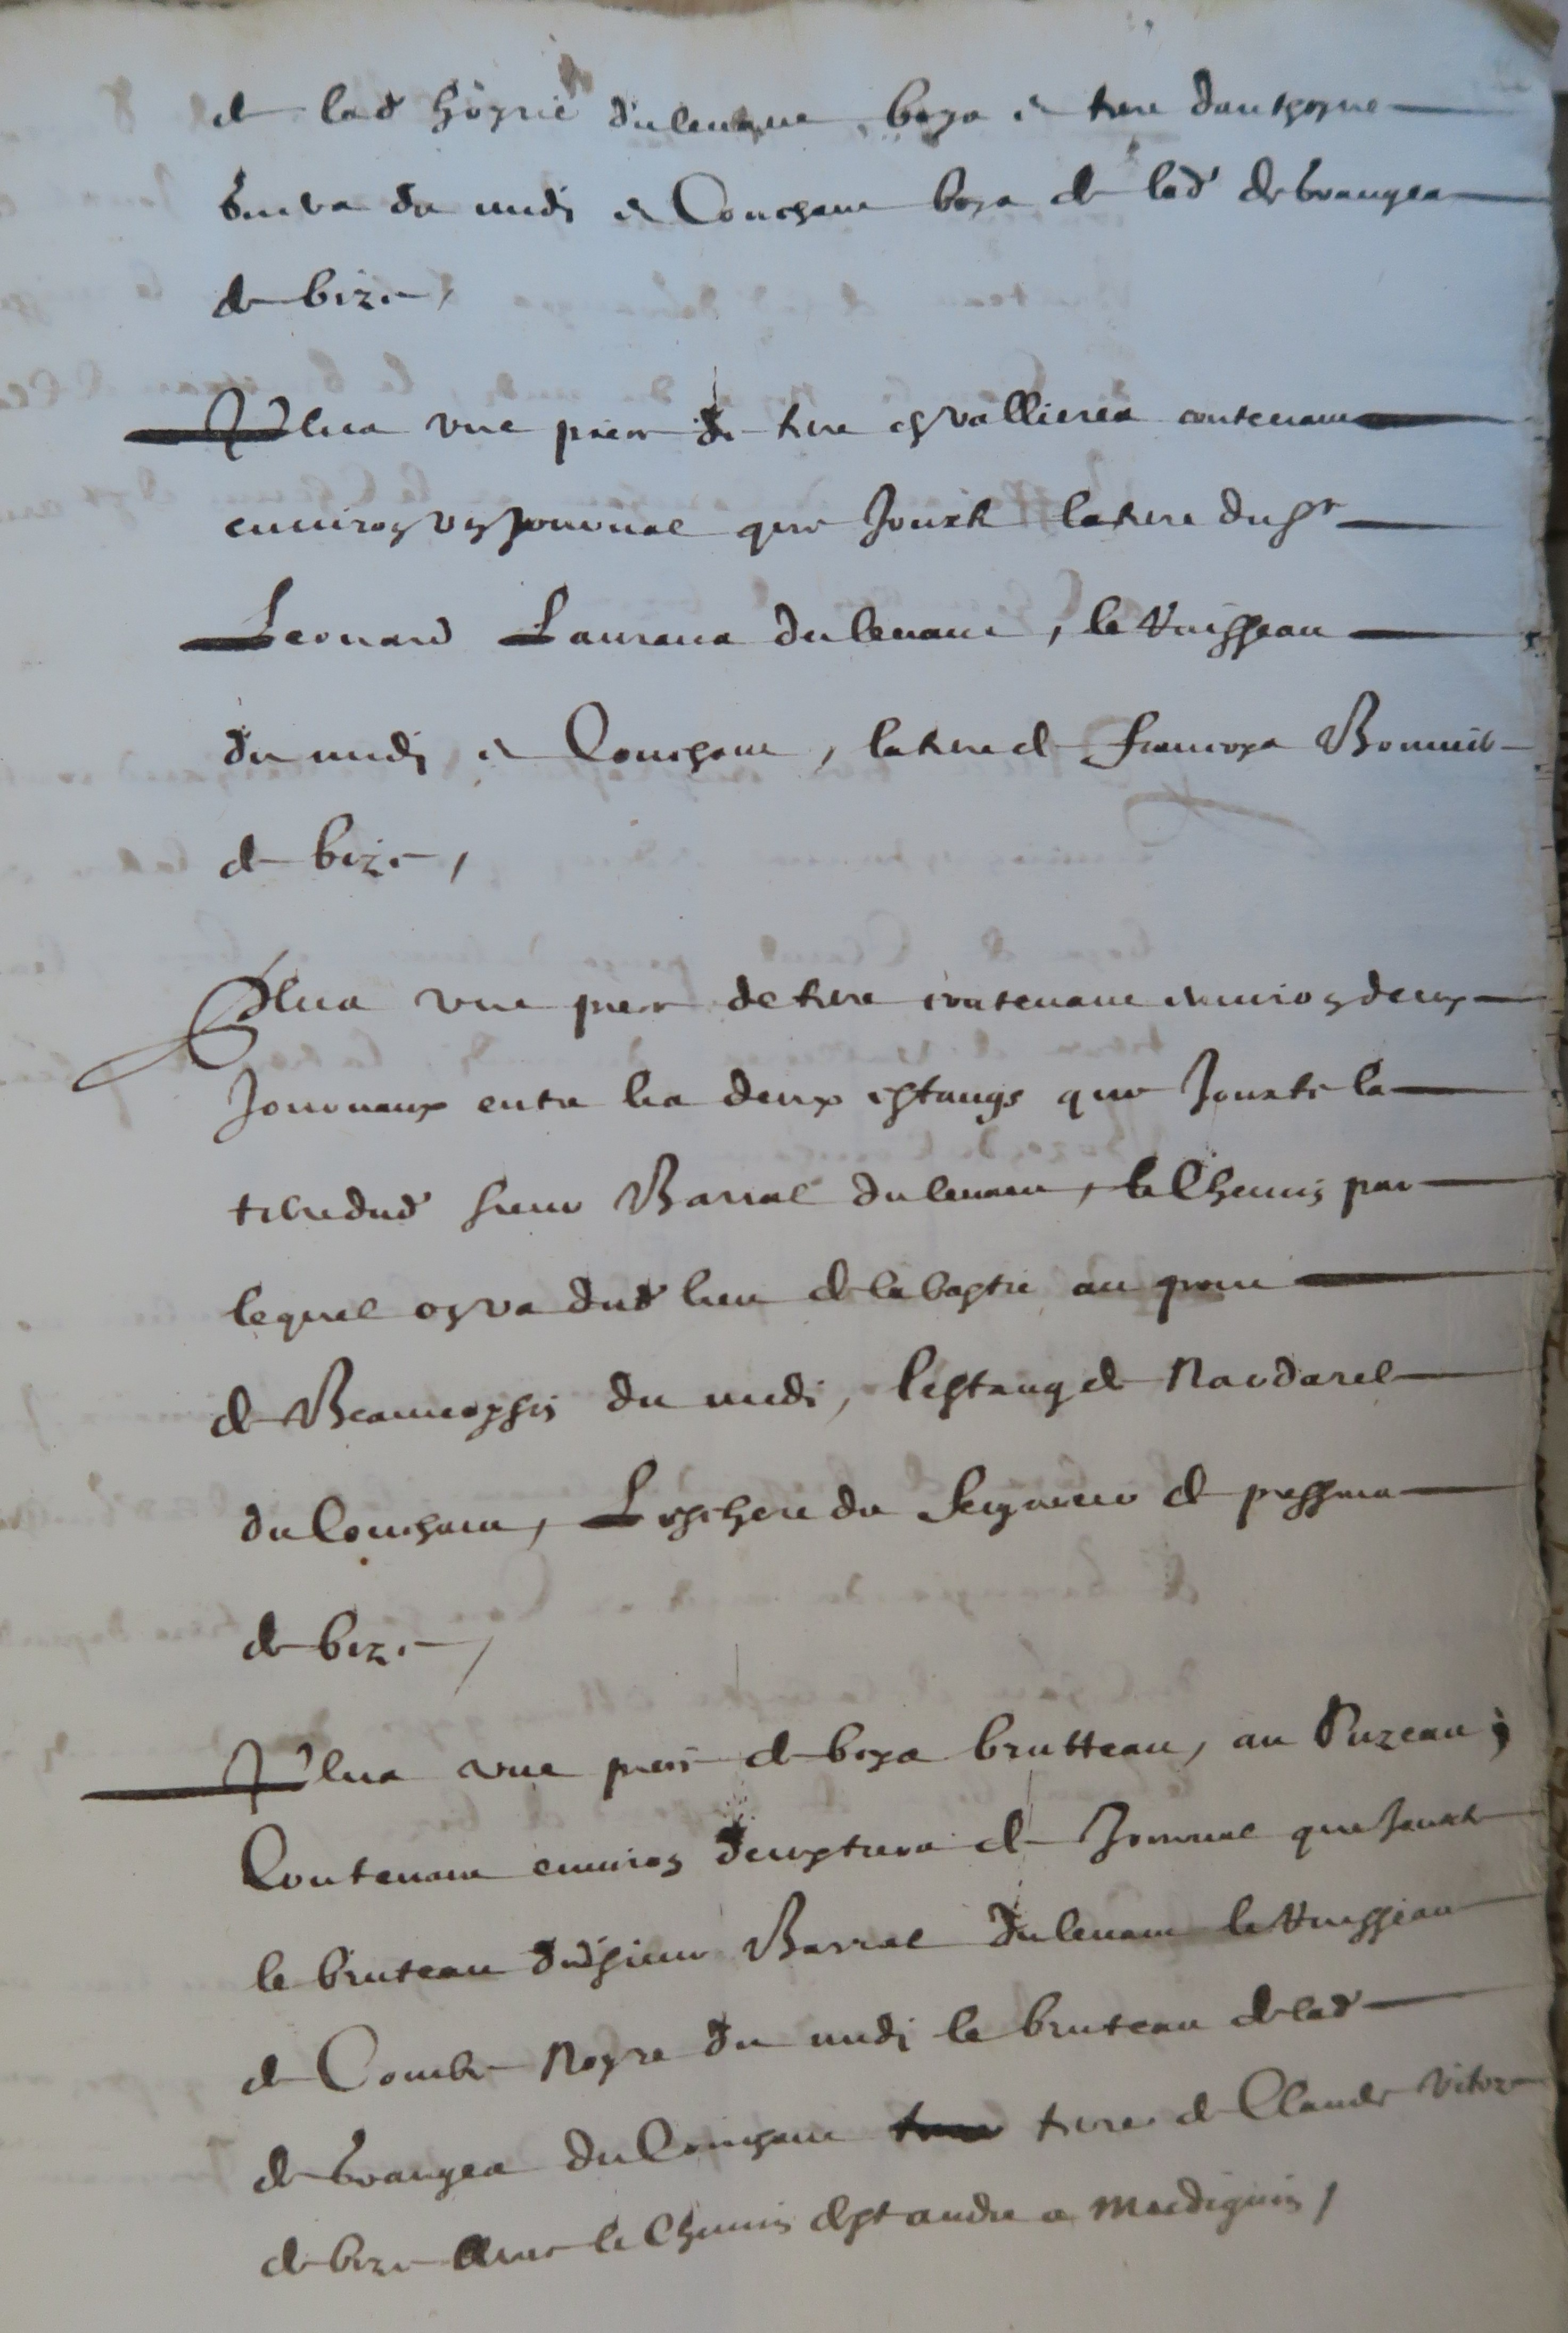 et lad hoyrie du levant, boys et terre danthoyne
du midi et Couchant boys de lad de Granges
de bize,
Plus une piece de terre es vallieres contenant
environ un journal que Jouxte la terre du sr
Leonard Laurans du levant, le Ruisseau
du midi et Couchant, la terre de francoys Bonniil
de bize,
Plus une piece de terre contenant environ deux
Journaux entre les deux estangs que Jouxte la
terre dud sieur Barral du levant, le Chemin par
lequel on va dud lieu de la bastie au
de Beaucroyssin du midi, lestang de Nardarel
du Couchant, Leschere du Seigneur de pressins
de bize,
Plus une piece de boys brutteau, au Puzeau,
Contenant environ deux tiers de Journal que Jouxte
le bruteau dud sieur Barral du levant le Ruisseau
de Combe Noyre du midi le bruteau de lad
de Granges du Couchant terre de Claude Vitoz
de bize avec le Chemin de st andre a